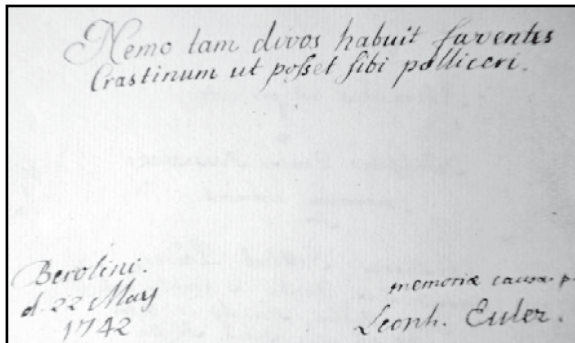 Nemo tam divos habuit faventes
Crastinum ut posset sibi polliceri.
Berolini.
d. 22 May
1742
memoriæ causa p.
Leonh. Euler.